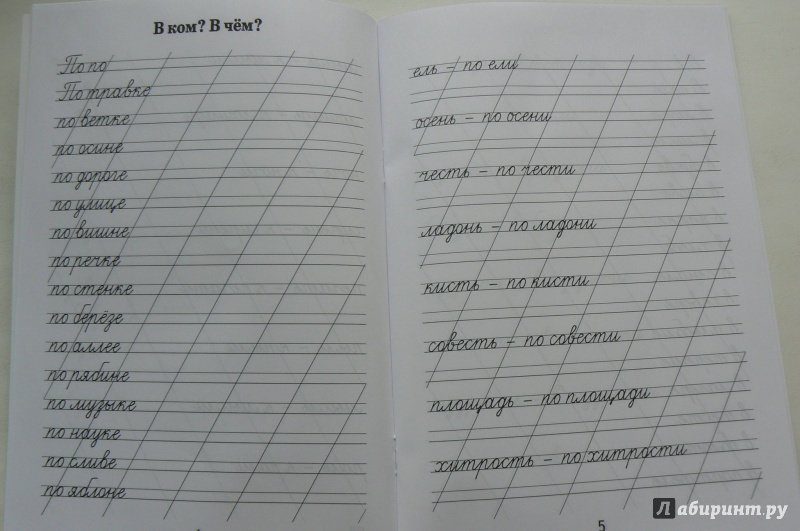 В ком? В чём?
По по
По травке
по ветке
по осине
по дороге
по улице
по вишне
по речке
по стенке
по берёзе
по аллее
по рябине
по музыке
по науке
по сливе
по яблоне
ель – по ели
осень – по осени
честь – по чести
ладонь – по ладони
кисть – по кисти
совесть – по совести
площадь – по площади
хитрость – по хитрости
5
Лабиринт.ру